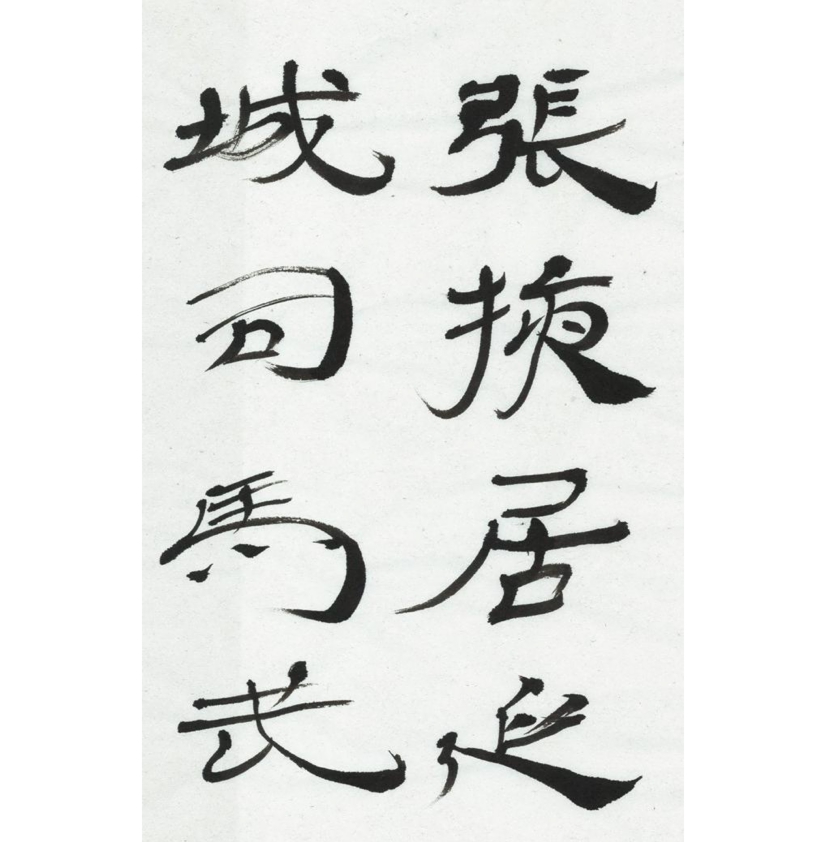 張掖居延
城司馬武